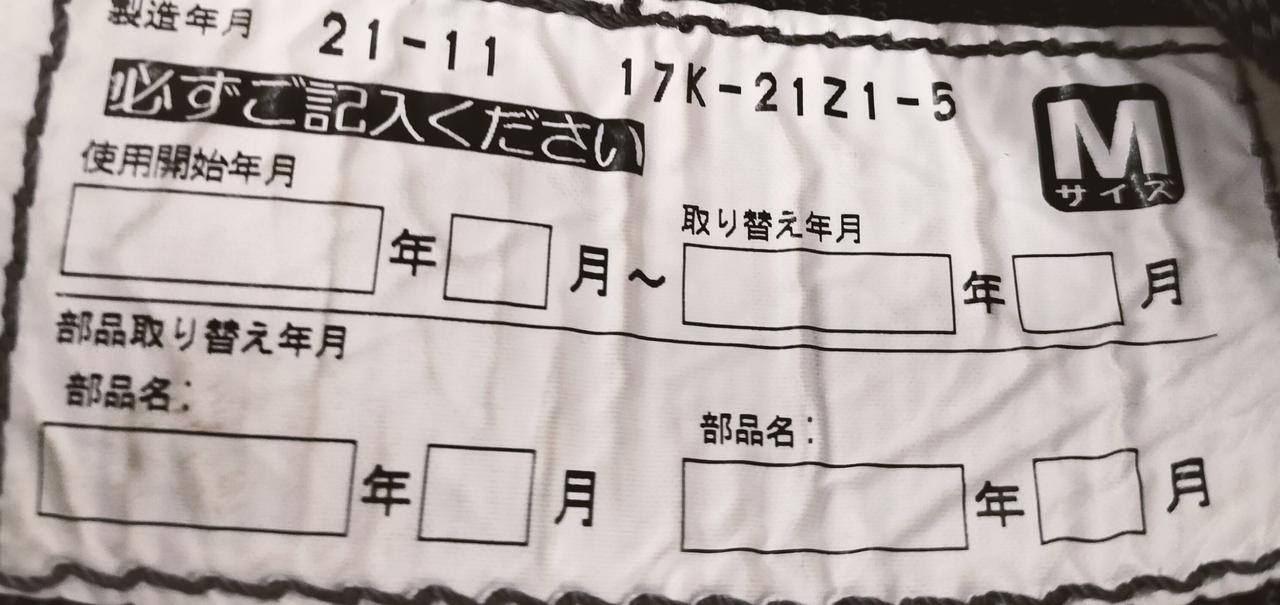 製造年月 21-11 17K-21Z1-5
必ずご記入ください
M
サイズ
使用開始年月
取り替え年月
年 月～ 年 月
部品取り替え年月
部品名: 部品名:
年 月 年 月